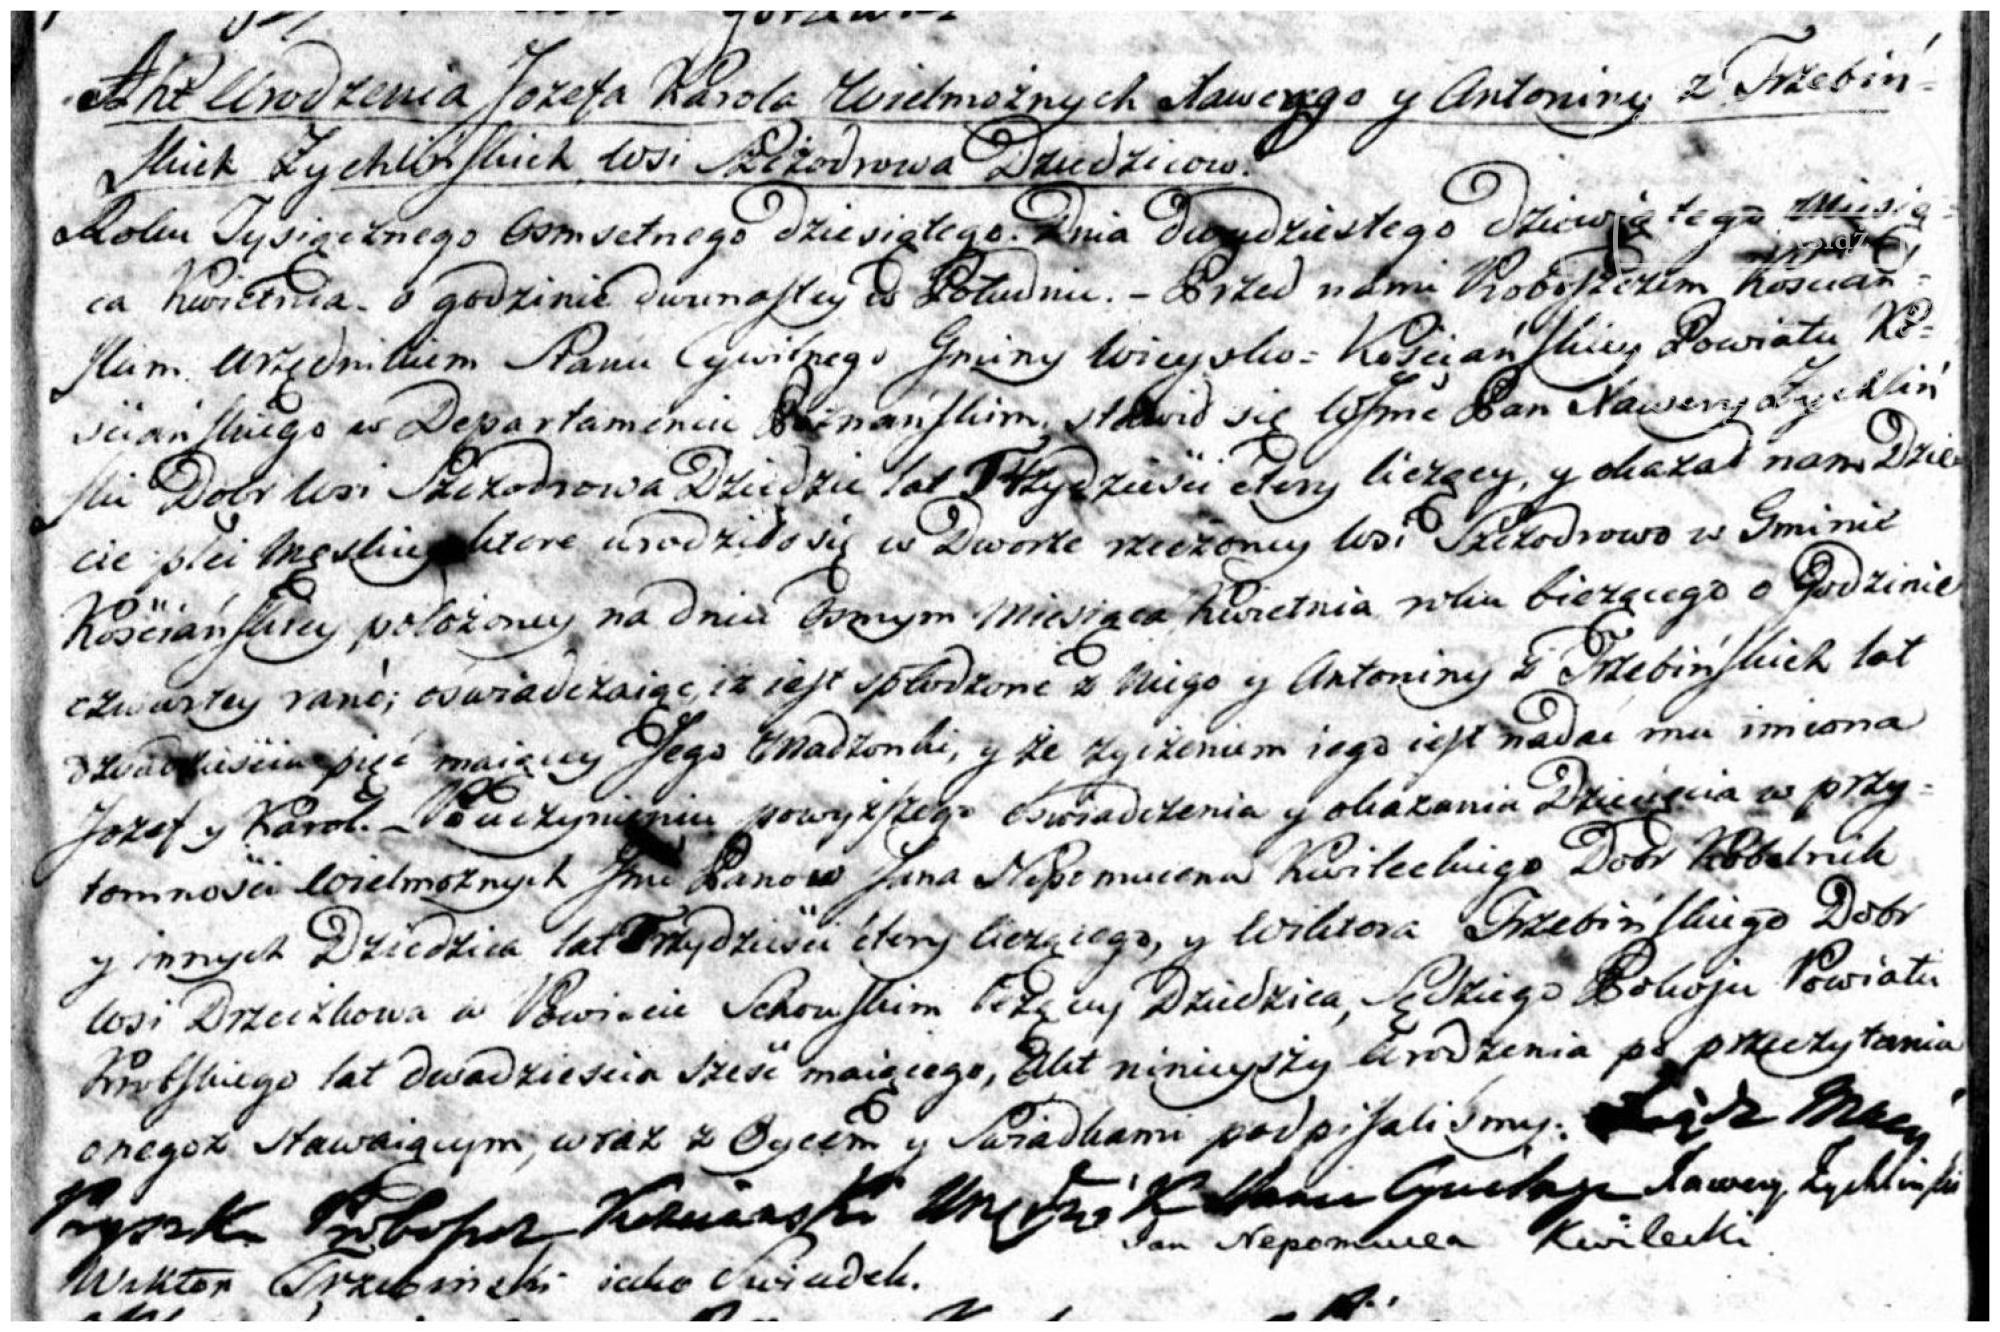 Akt Urodzenia Jozefa Karola Wielmożnych Xawerego y Antoniny z Trzebiń=
skich Zychlińskich wsi Szczodrowa Dziedzicow.
Roku Tysiącznego Osmsetnego dziesiątego. Dnia dwudziestego dziewiątego Miesią=
ca Kwietnia. o godzinie dwunastey w Południe. – Przed nami Proboszczem Kościań=
skim Urzędnikiem Stanu Cywilnego Gminy Wieysko= Kościańskiey Powiatu Ko=
ściańskiego w Departamencie Poznańskim, stawił się WJmć Pan Xawery Zychliń
ski Dobr wsi Szczodrowa Dziedzic lat Trzydzieści cztery liczący, y okazał nam Dzie
cie płci Męskiey które urodziło się w Dworze rzeczoney wsi Szczodrowo w Gminie
Kościańskiey położoney na dniu Osmym Miesiąca Kwietnia roku bieżącego o Godzinie
czwartey rano; oświadczaiąc, iż iest spłodzone z Niego y Antoniny z Trzebińskich lat
dwadzieścia pięć maiącey Jego Małżonki, y że życzeniem iego iest nadać mu imiona
Jozef y Karol. – Po uczynieniu powyższego oświadczenia y okazania Dziecięcia w przy=
tomności Wielmożnych Jmć Panow Jana Nepomucena Kwileckiego Dobr Kobelnik
y innych Dziedzica lat Trzydzieści cztery liczącego, y Wiktora Trzebińskiego Dobr
wsi Drzeczkowa w Powiecie Schowskim leżącey Dziedzica, Sędziego Pokoju Powiatu
Krobskiego lat dwadzieścia sześć maiącego, Akt ninieyszy Urodzenia po przeczytaniu
onegoż stawaiącym, wraz z Oycem y Swiadkami podpisaliśmy. Xiądz Maciy
Proboszcz Kościański Urzędnik Stanu Cywilnego Xawery Zychliński
Jan Nepomucen Kwilecki
Wiktor Trzebinski iako Swiadek.